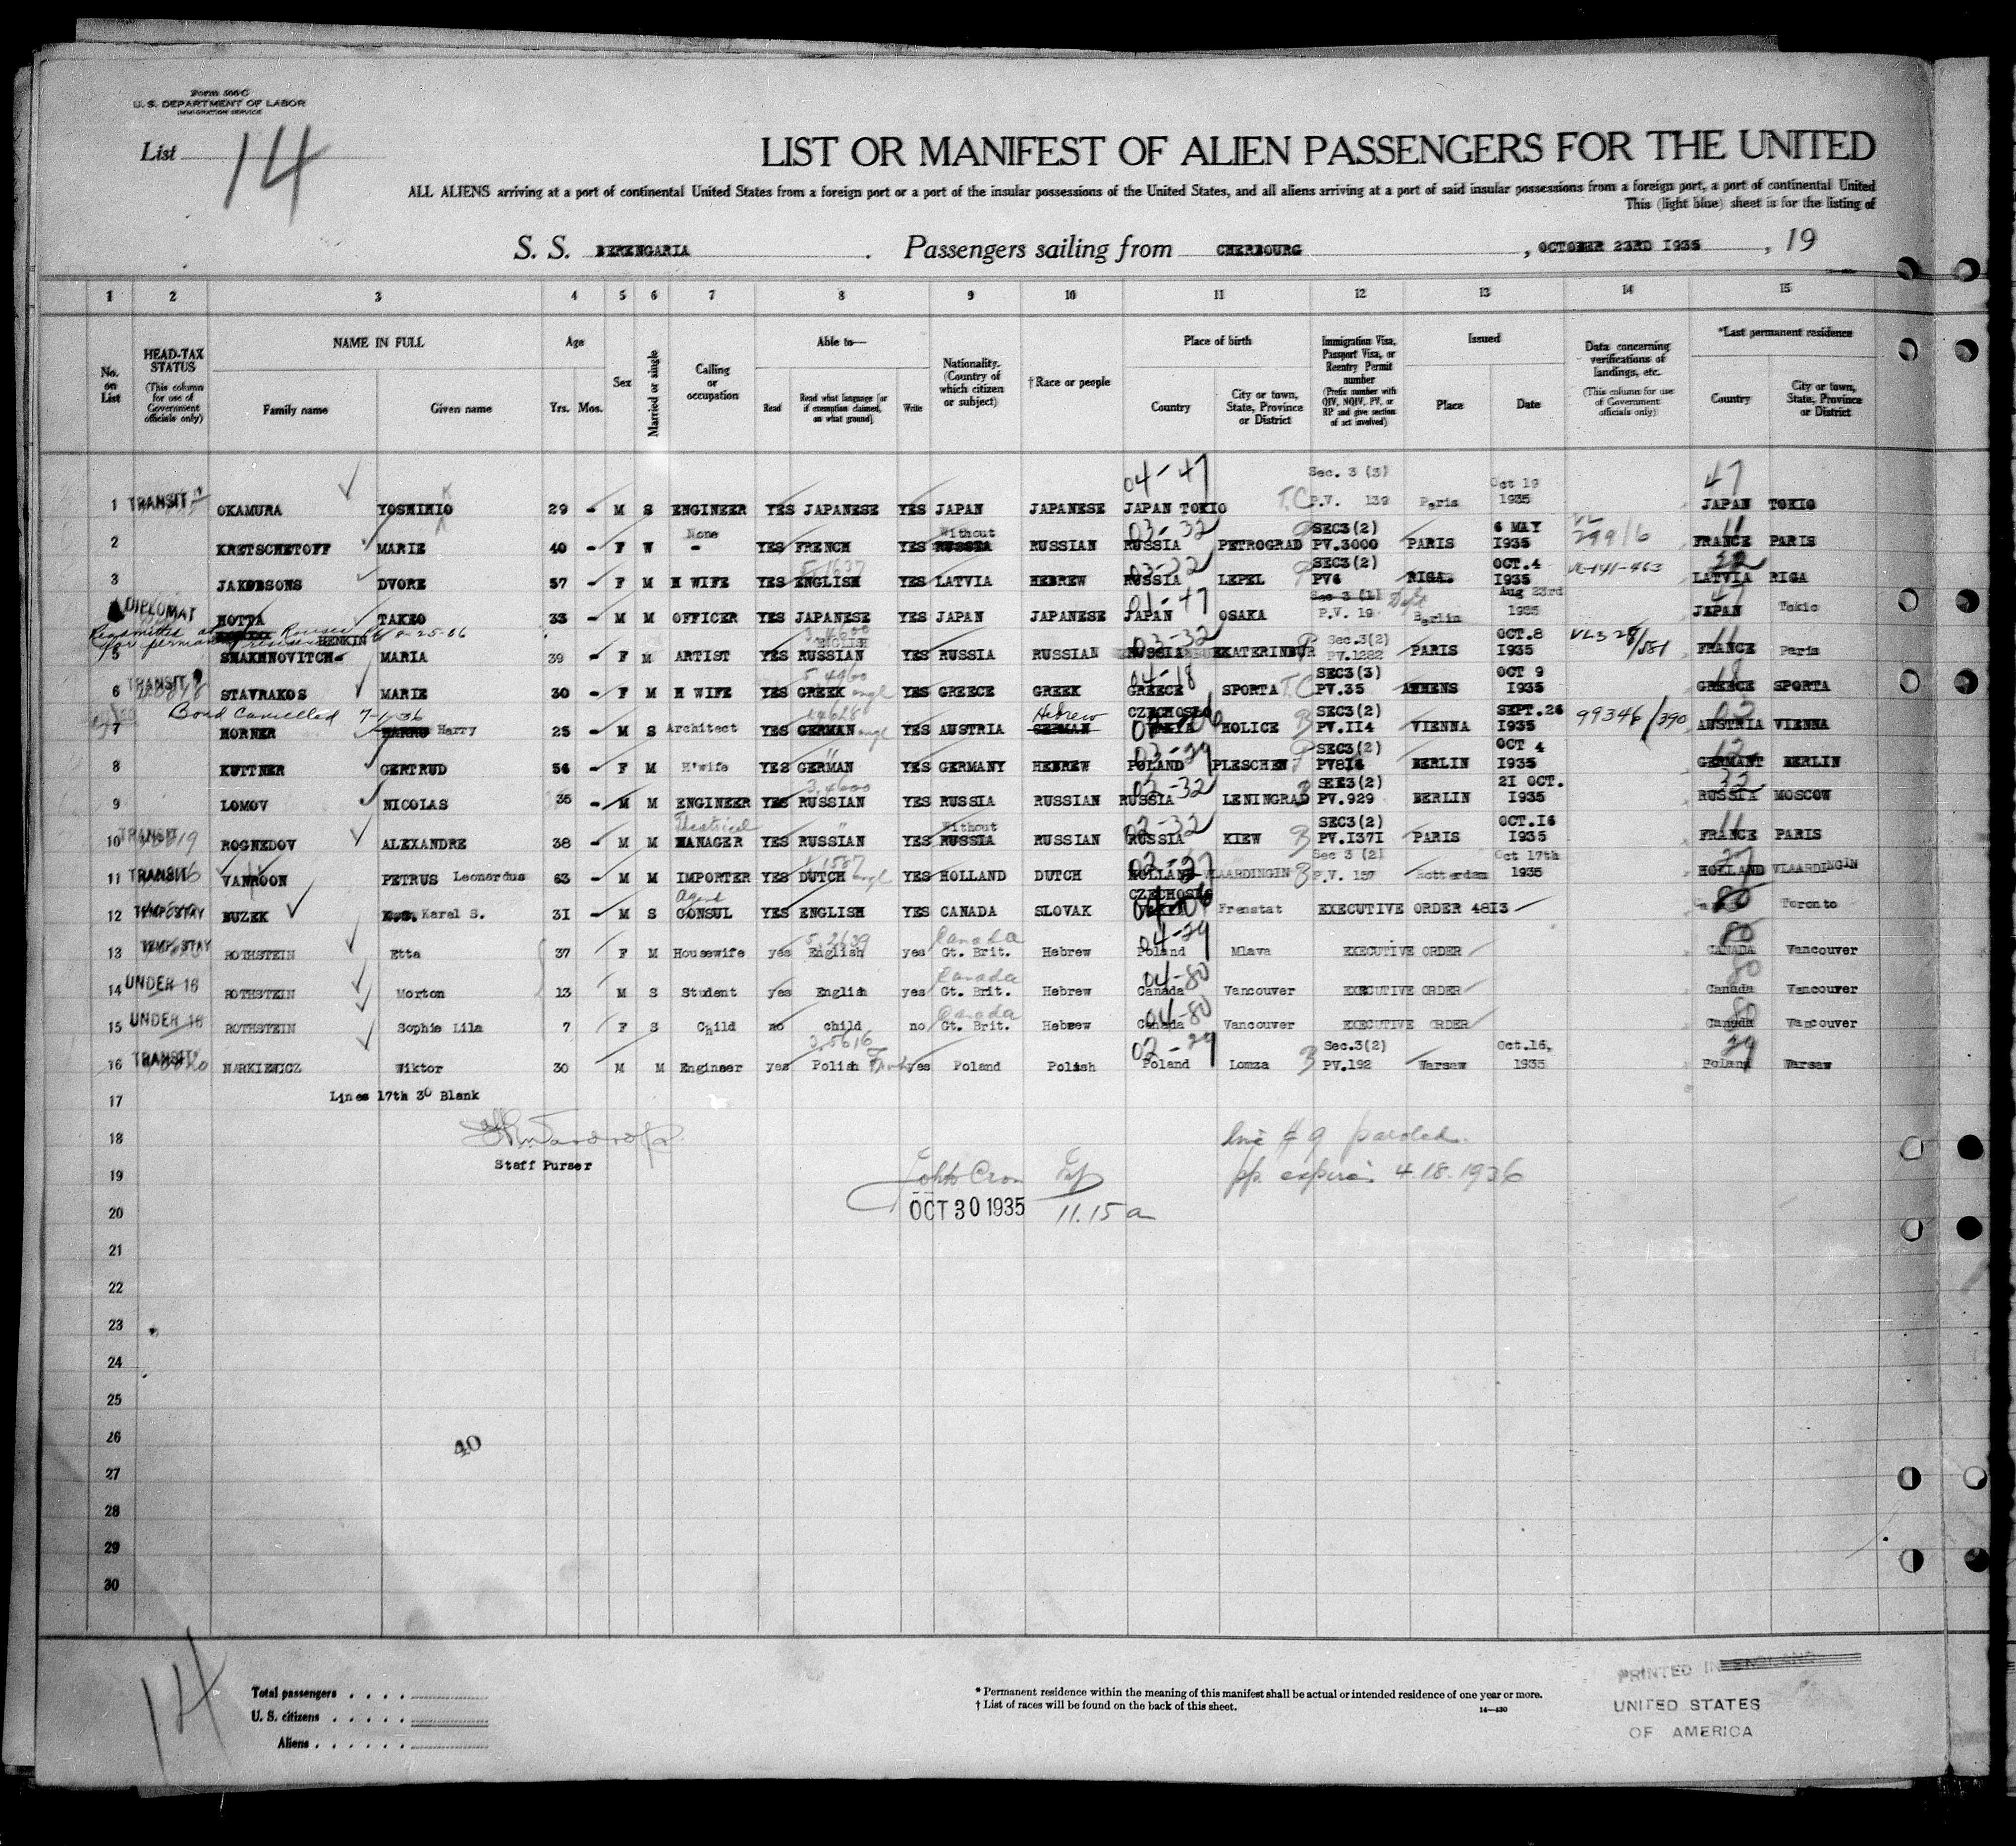 Form 500 C
U. S. DEPARTMENT OF LABOR
IMMIGRATION SERVICE
List 14
LIST OR MANIFEST OF ALIEN PASSENGERS FOR THE UNITED
ALL ALIENS arriving at a port of continental United States from a foreign port or a port of the insular possessions of the United States, and all aliens arriving at a port of said insular possessions from a foreign port, a port of continental United
This (light blue) sheet is for the listing of
S. S. BERENGARIA . Passengers sailing from CHERBOURG , OCTOBER 23RD 1935 , 19
1 2 3 4 5 6 7 8 9 10 11 12 13 14 15
No. on List
HEAD-TAX STATUS (This column for use of Government officials only)
NAME IN FULL Family name Given name
Age Yrs. Mos.
Sex
Married or single
Calling or occupation
Able to— Read Read what language [or if exemption claimed, on what ground] Write
Nationality. (Country of which citizen or subject)
† Race or people
Place of birth Country City or town, State, Province or District
Immigration Visa, Passport Visa, or Reentry Permit number (Prefix number with QIV, NQIV, PV, or RP and give section of act involved)
Issued Place Date
Data concerning verifications of landings, etc. (This column for use of Government officials only)
*Last permanent residence Country City or town, State, Province or District
04-47 Sec. 3 (3) Oct 19 47
1 TRANSIT OKAMURA YOSHIHIO K 29 - M S ENGINEER YES JAPANESE YES JAPAN JAPANESE JAPAN TOKIO T.C P.V. 139 Paris 1935 JAPAN TOKIO
None Without 03-32 SEC3(2) 6 MAY 11
2 KRETSCHETOFF MARIE 40 - F W - YES FRENCH YES RUSSIA RUSSIAN RUSSIA PETROGRAD PV.3000 PARIS 1935 FRANCE PARIS
03-32 SEC3(2) OCT.4
3 JAKOBSONS DVORE 57 - F M H WIFE YES ENGLISH YES LATVIA HEBREW RUSSIA LEPEL PV6 RIGA. 1935 VL-141-463 LATVIA RIGA
DIPLOMAT 01-47 Sec 3 (1) Dept Aug 23rd 47
HOTTA TAKEO 33 - M M OFFICER YES JAPANESE YES JAPAN JAPANESE JAPAN OSAKA P.V. 19 Berlin 1935 JAPAN Tokio
HENKIN 3.4600 ENGLISH 03-32 Sec.3(2) OCT.8 VL3 28/581 11
5 SHAKHNOVITCH MARIA 39 - F M ARTIST YES RUSSIAN YES RUSSIA RUSSIAN RUSSIA EKATERINBUR PV.1282 PARIS 1935 FRANCE Paris
TRANSIT 5.4960 04-18 SEC3(3) OCT 9 18
6 STAVRAKOS MARIE 30 - F M H WIFE YES GREEK engl YES GREECE GREEK GREECE SPORTA T.C PV.35 ATHENS 1935 GREECE SPORTA
Bond Cancelled 7-1-36 Hebrew CZECHOSLO SEC3(2) SEPT.26 99346/390 03
7 HORNER HARRU Harry 25 - M S Architect YES GERMAN engl YES AUSTRIA GERMAN VAKIA HOLICE B PV.114 VIENNA 1935 AUSTRIA VIENNA
03-29 SEC3(2) OCT 4 12
8 KUTTNER GERTRUD 56 - F M H'wife YES GERMAN YES GERMANY HEBREW POLAND PLESCHEN PV814 BERLIN 1935 GERMANY BERLIN
3.4600 02-32 SEE3(2) 21 OCT. 32
9 LOMOV NICOLAS 35 - M M ENGINEER YES RUSSIAN YES RUSSIA RUSSIAN RUSSIA LENINGRAD B PV.929 BERLIN 1935 RUSSIA MOSCOW
TRANSIT Theatrical Without 02-32 SEC3(2) OCT.16 11
10 ROGNEDOV ALEXANDRE 38 - M M MANAGER YES RUSSIAN YES RUSSIA RUSSIAN RUSSIA KIEW B PV.1371 PARIS 1935 FRANCE PARIS
02-27 Sec 3 (2) Oct 17th 27
11 TRANSIT VANROON PETRUS Leonardus 63 - M M IMPORTER YES DUTCH engl YES HOLLAND DUTCH HOLLAND VLAARDINGIN B P.V. 157 Rotterdam 1935 HOLLAND VLAARDINGIN
Agent CZECHOSLO 80
12 TEMP STAY BUZEK K.S. Karel S. 31 - M S CONSUL YES ENGLISH YES CANADA SLOVAK VAKIA 04-06 Frenstat EXECUTIVE ORDER 4813 Toronto
5.2639 Canada 04-29 80
13 TEMP STAY ROTHSTEIN Etta 37 F M Housewife yes English yes Gt. Brit. Hebrew Poland Mlava EXECUTIVE ORDER CANADA Vancouver
Canada 04-80 80
14 UNDER 16 ROTHSTEIN Morton 13 M S Student yes English yes Gt. Brit. Hebrew Canada Vancouver EXECUTIVE ORDER Canada Vancouver
Canada 04-80 80
15 UNDER 16 ROTHSTEIN Sophie Lila 7 F S Child no child no Gt. Brit. Hebrew Canada Vancouver EXECUTIVE ORDER Canada Vancouver
3.5616 02-29 Sec.3(2) Oct.16, 29
16 TRANSIT NARKIEWICZ Wiktor 30 M M Engineer yes Polish French yes Poland Polish Poland Lomza B PV.192 Warsaw 1935 Poland Warsaw
17 Lines 17th 30 Blank
18 line # 9 paroled.
Staff Purser
19 John Cron pp. expires 4.18.1936
20 OCT 30 1935 11.15 a
21
22
23
24
25
26 40
27
28
29
30
14
Total passengers . . . .
U. S. citizens . . . . .
Aliens . . . . . .
* Permanent residence within the meaning of this manifest shall be actual or intended residence of one year or more.
† List of races will be found on the back of this sheet.
14—430
PRINTED IN ENGLAND
UNITED STATES
OF AMERICA